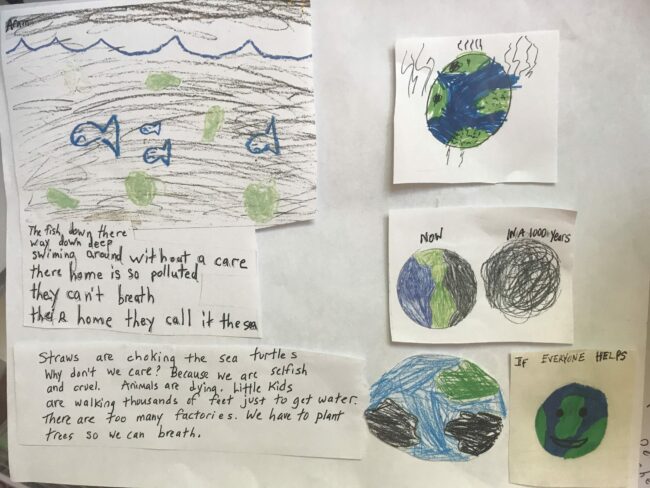 The fish, down there
way down deep
swiming around without a care
there home is so polluted
they can't breath
their home they call it the sea
Straws are choking the sea turtles
Why don't we care? Because we are selfish
and cruel. Animals are dying. Little Kids
are walking thousands of feet just to get water.
There are too many factories. We have to plant
trees so we can breath.
NOW
IN A 1000 YEARS
IF EVERYONE HELPS